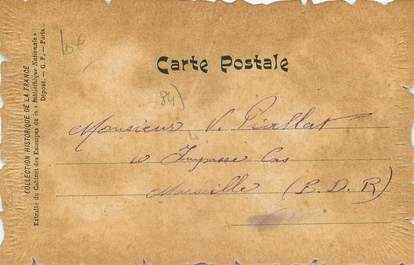 COLLECTION HISTORIQUE DE LA FRANCE
Extraite du Cabinet des Estampes de la « Bibliothèque Nationale »
Déposé. — G. F. — Paris.
Carte Postale
84)
Monsieur V. Piallat
Impasse Cas
Marseille (B. D. R)